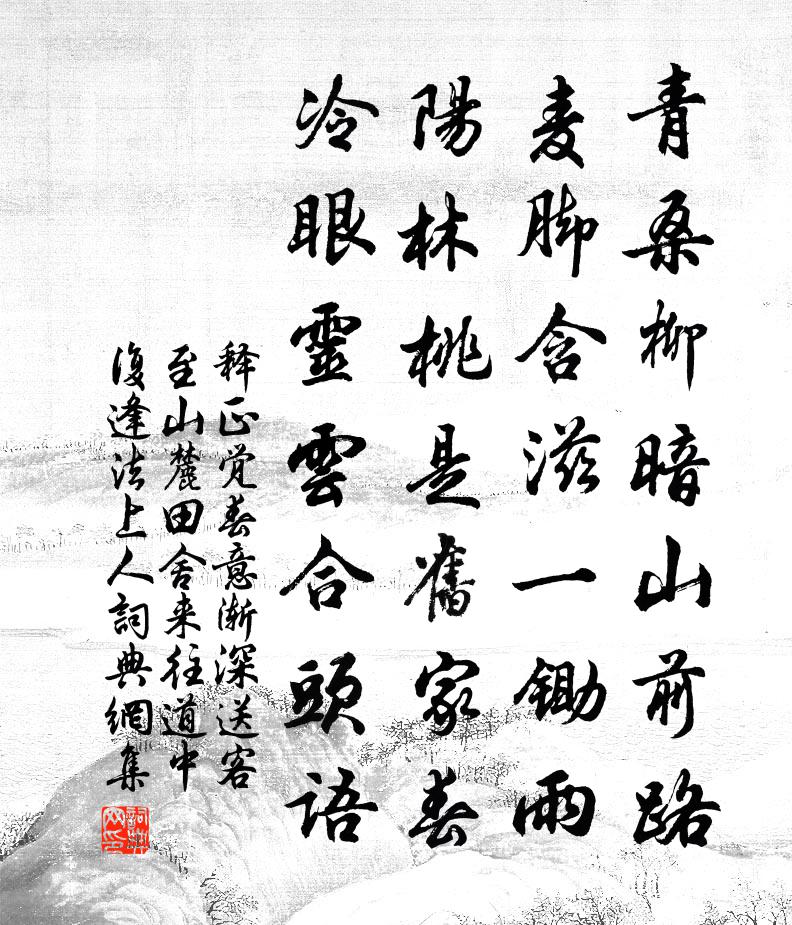 青桑柳暗山前路
麦脚含滋一锄雨
陽林桃是舊家春
冷眼靈雲合頭语
释正觉春意渐深送客
至山麓田舍来往道中
復逢法上人詞典網集
詞典
网印